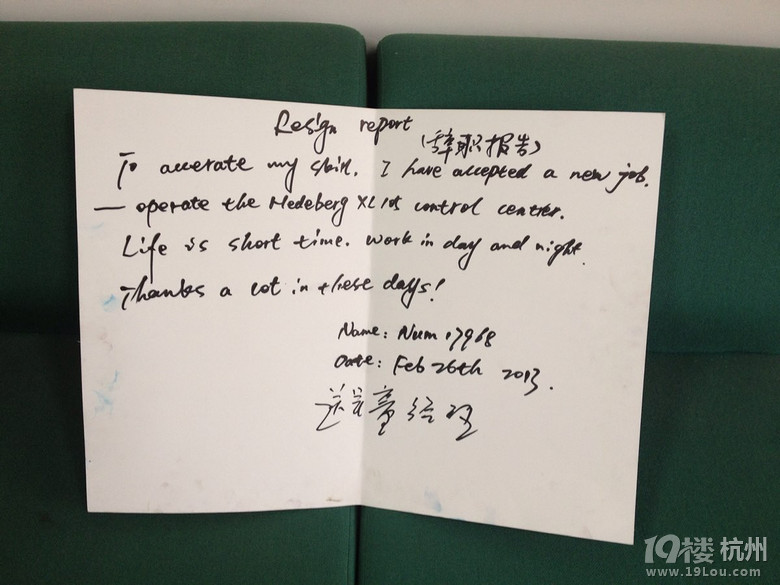 Resign report (辞职报告)
To accerate my skill. I have accepted a new job.
— operate the Hedeberg XL105 control center.
Life is short time. work in day and night.
Thanks a lot in these days!
Name: Num 17968
Date: Feb 26th 2013.
送呈童经理
19楼 杭州
www.19Lou.com